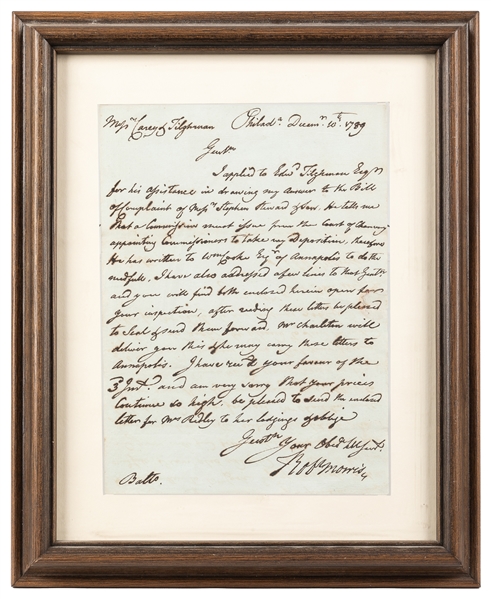 Messrs Carey & Tilghman Philada Decemr 10th 1789
Gentn
I applied to Edwd Tilghman Esqr
for his assistance in drawing my Answer to the Bill
of Complaint of Messrs Stephen Steward & Son. He tells me
that a Commission must issue from the Court of Chancery
appointing Commissioners to take my Deposition, therefore
He has written to Wm Cooke Esqr of Annapolis to do the
needfull, I have also addressed a few lines to that Gentn
and you will find both enclosed herein open for
your inspection, after reading these letters be pleased
to Seal & send them forward. Mr Charlton will
deliver you this & he may carry those letters to
Annapolis. I have recd your favour of the
3d Inst. and am very sorry that your prices
Continue so high, be pleased to send the enclosed
letter for Mrs Ridley to her lodgings & oblige
Gentn
Your Obedt hble Servt
Robt Morris
Balto.